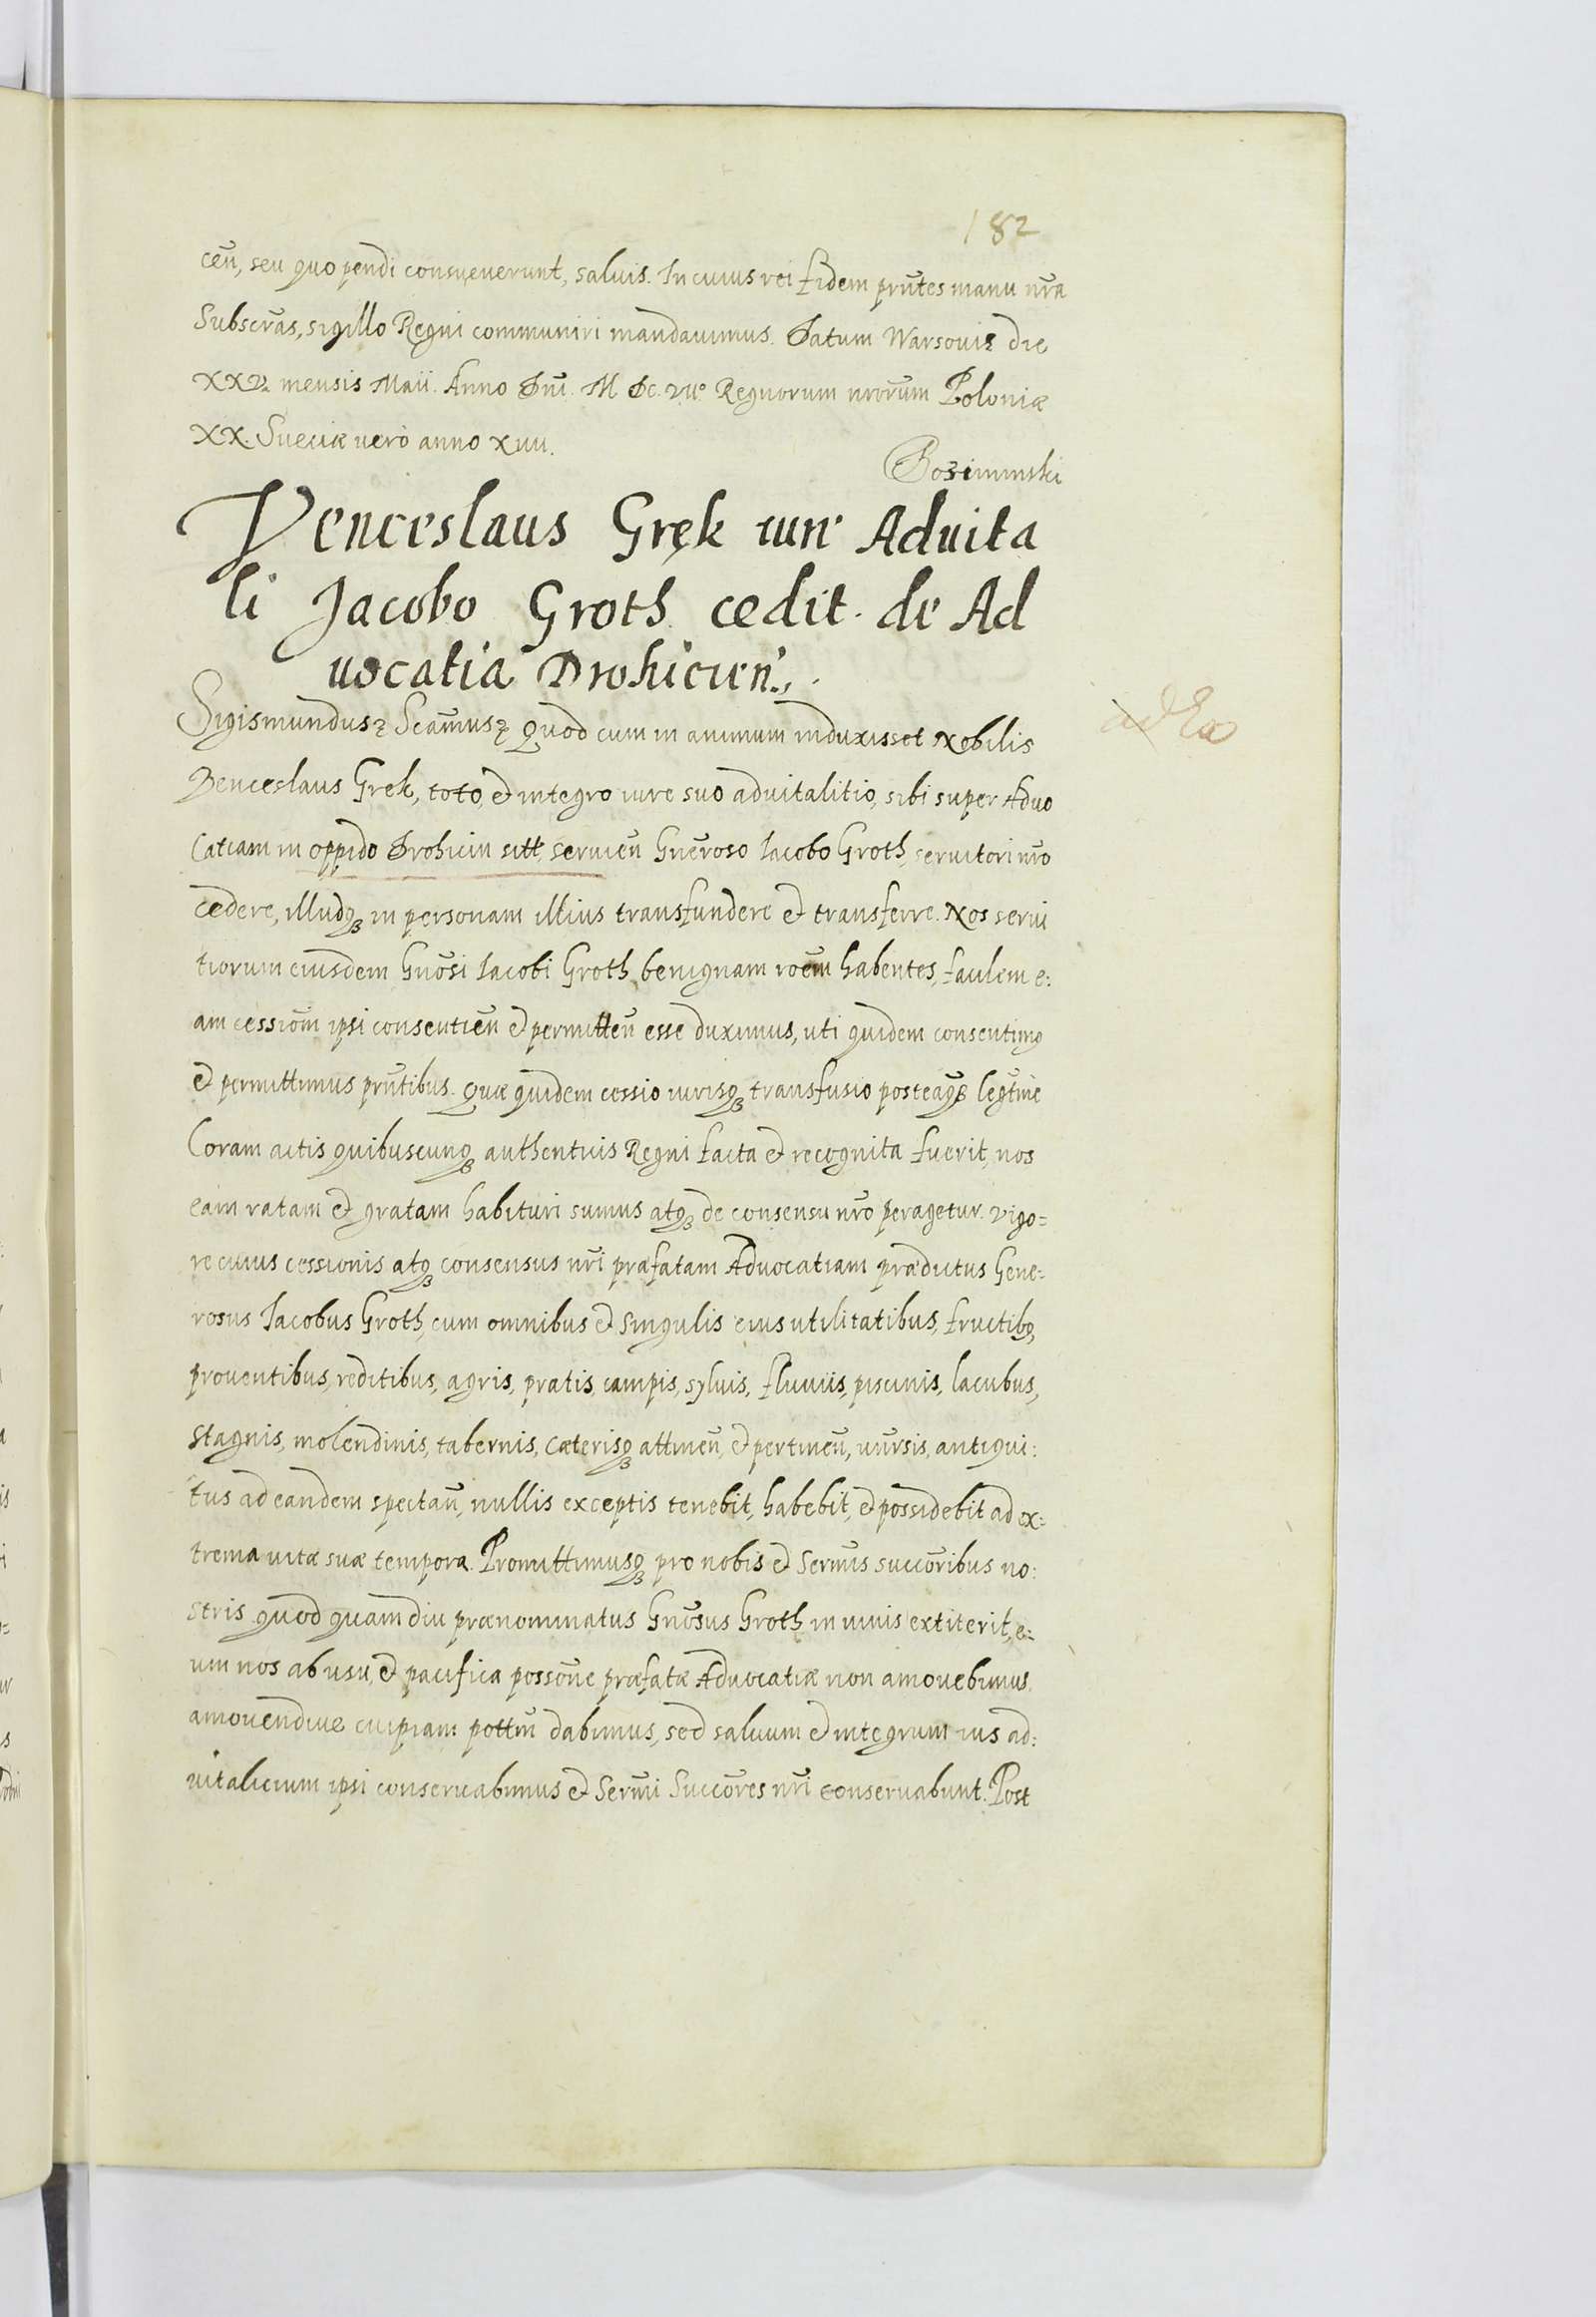 182
ceñ, seu quo pendi consueuerunt, saluis. In cuius rei fidem pñtes manu nr̃a
Subscr̃as, sigillo Regni communiri mandauimus. Datum Warsouiæ die
XXV mensis Maii. Anno Dñi. M Dc. VIIº Regnorum nr̃orum Poloniæ
XX. Sueciæ uerò anno xiiii.
Venceslaus Gręk iur̃ Aduita
li Jacobo Groth cedit de Ad
uocatia Drohicien̄.
ad Ea
Sigismundusꝛ Scam̃usꝛ Quod cum in animum induxisset Nobilis
Venceslaus Grek, toto, & integro iure suo aduitalitio, sibi super Aduo
catiam in oppido Drohicin sitt, seruieñ Gñeroso Iacobo Groth, seruitori nr̃o
cedere, illudqꝫ in personam illius transfundere & transferre. Nos serui
tiorum eiusdem Gnõsi Iacobi Groth, benignam roẽm habentes, faulem e:
am cessioñm ipsi consentieñ & permitteñ esse duximus, uti quidem consentimꝯ
& permittimus pñtibus. Quæ quidem cessio iurisqꝫ transfusio posteaqꝫ legt̃ime
Coram actis quibuscunqꝫ authenticis Regni facta & recognita fuerit, nos
eam ratam & gratam habituri sumus atqꝫ de consensu nr̃o peragetur. Vigo=
re cuius cessionis atqꝫ consensus nr̃i præfatam Aduocatiam prædictus Gene=
rosus Iacobus Groth, cum omnibus & singulis eius utilitatibus, fructibꝯ,
prouentibus, reditibus, agris, pratis, campis, syluis, fluuiis, piscinis, lacubus,
stagnis, molendinis, tabernis, cæterisqꝫ attineñ, & pertineñ, uñrsis, antiqui:
tus ad eandem spectañ, nullis exceptis tenebit, habebit, & possidebit ad ex=
trema uitæ suæ tempora. Promittimusqꝫ pro nobis & Serm̃is succõribus no:
stris quod quamdiu prænominatus Gnõsus Groth in uiuis extiterit, e:
um nos ab usu, & pacifica possõne præfatæ Aduocatiæ non amouebimus
amouendiue cuipiam pottm̃ dabimus, sed saluum & integrum ius ad:
uitalicium ipsi conseruabimus & Serm̃i Succõres nr̃i conseruabunt. Post